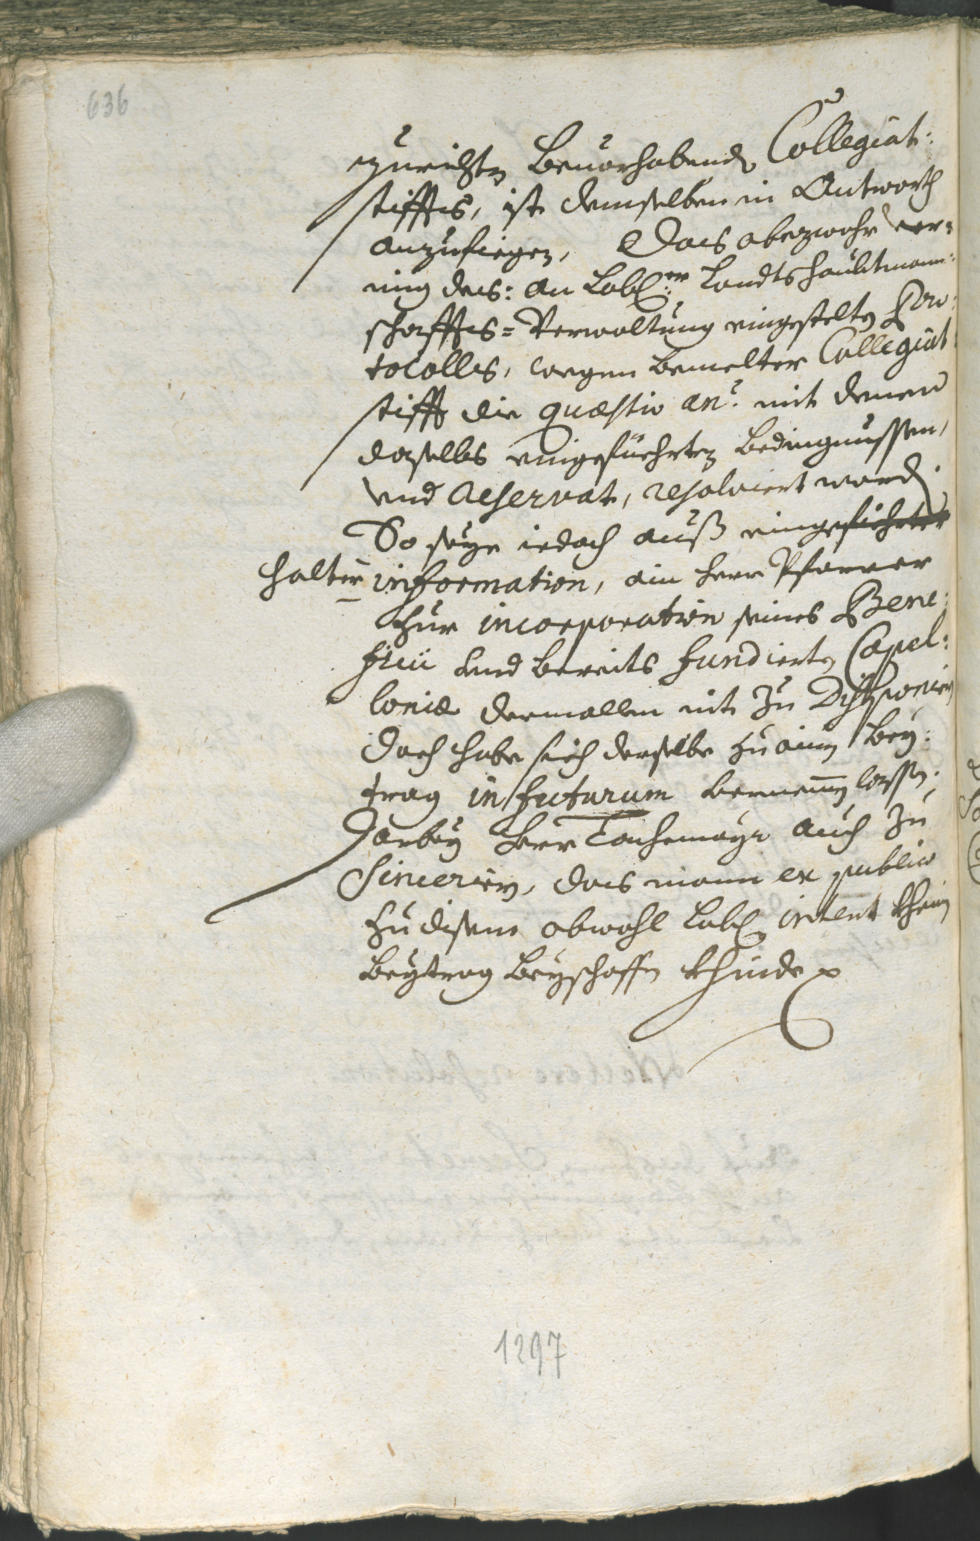 636
zurichten Beuorhabends Collegiat:
stiffts, ist demselben in Antworth
anzufiegen, Das obezwahr ver:
mig des: an Löbl:er Landtshaubtmann:
schaffts=Verwaltung eingestelten Pro:
tocolls, wegen bemelter Collegiat
stifft die quæstio an? mit denen
daselbs eingefüehrten bedingnussen,
vnd Reservat, resolviert worden
So seye iedoch auß eingeführter
halter information, ain herr Pfarrer
zur incorporation seines Bene:
ficii vnd bereits fundierten Capel:
loniæ dermallen nit zu Disponiern
doch habe sich derselbe zu ainen Bey:
trag in futurum vernemmen lassen,
Darbey Herr auch zu
Sincerirn, das mann ex publico
zu disem obwohl Löbl: intent khein
beytrag beyschaffen khünde
1297